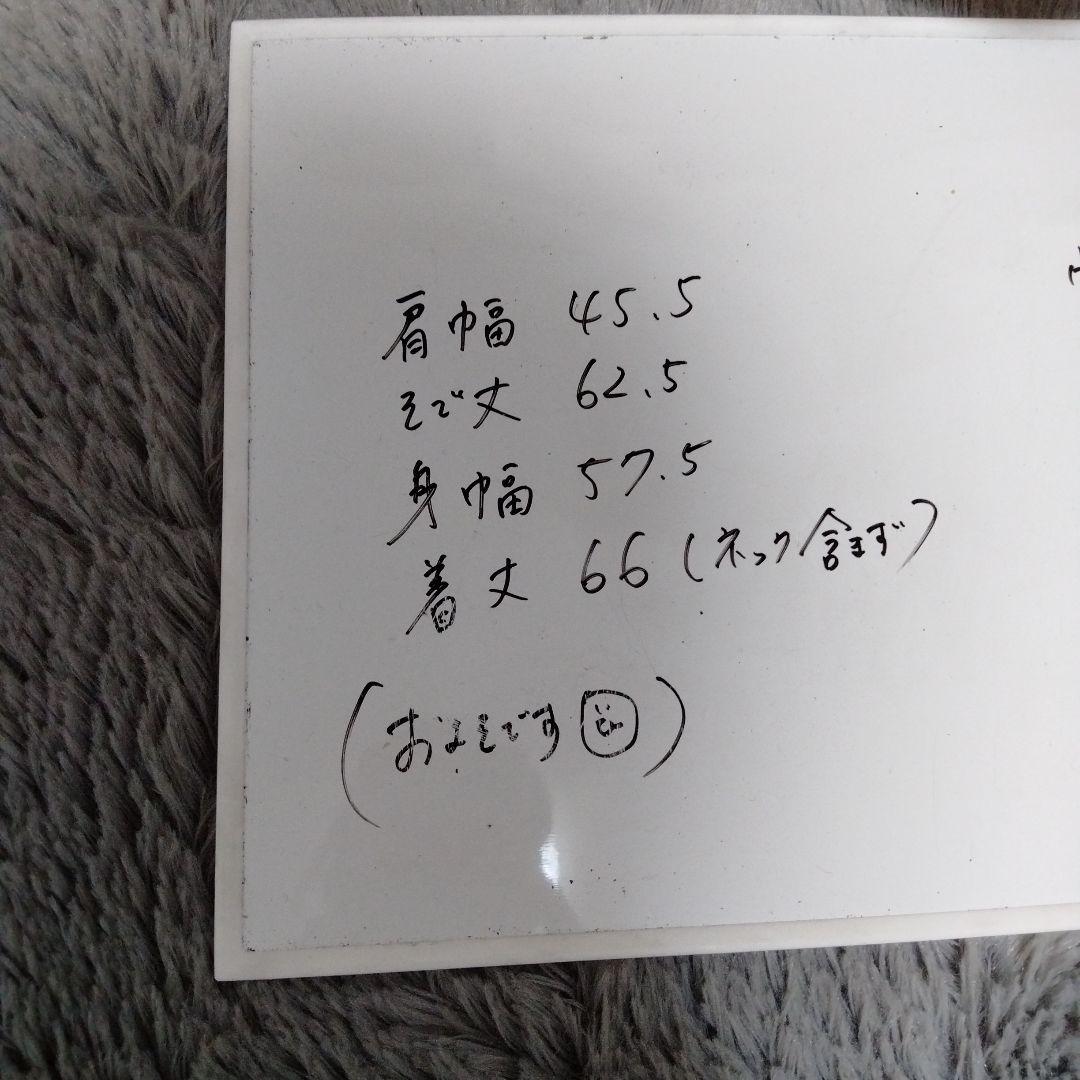 肩幅 45.5
そで丈 62.5
身幅 57.5
着丈 66 (ネック含まず)
(およそです cm)